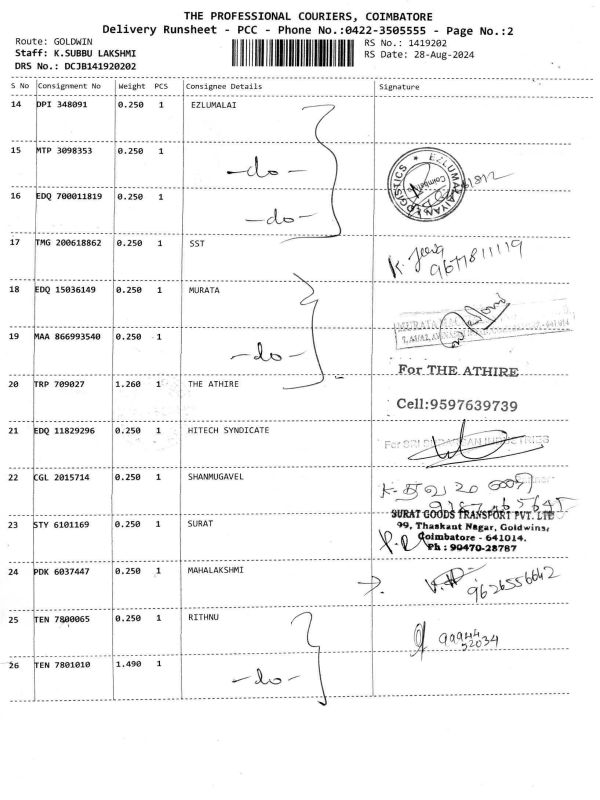 THE PROFESSIONAL COURIERS, COIMBATORE
Delivery Runsheet - PCC - Phone No.:0422-3505555 - Page No.:2
Route: GOLDWIN RS No.: 1419202
Staff: K.SUBBU LAKSHMI RS Date: 28-Aug-2024
DRS No.: DCJB141920202
S No Consignment No Weight PCS Consignee Details Signature
14 DPI 348091 0.250 1 EZLUMALAI
15 MTP 3098353 0.250 1 -do-
16 EDQ 700011819 0.250 1 -do-
17 TMG 200618862 0.250 1 SST
9677811119
18 EDQ 15036149 0.250 1 MURATA
19 MAA 866993540 0.250 1 -do-
20 TRP 709027 1.260 1 THE ATHIRE For THE ATHIRE
Cell:9597639739
21 EDQ 11829296 0.250 1 HITECH SYNDICATE
22 CGL 2015714 0.250 1 SHANMUGAVEL
23 STY 6101169 0.250 1 SURAT SURAT GOODS TRANSPORT PVT. LTD
99, Thaskant Nagar, Goldwins,
Coimbatore - 641014.
Ph : 90470-28787
24 PDK 6037447 0.250 1 MAHALAKSHMI 9626556642
25 TEN 7800065 0.250 1 RITHNU 99944
52034
26 TEN 7801010 1.490 1 -do-